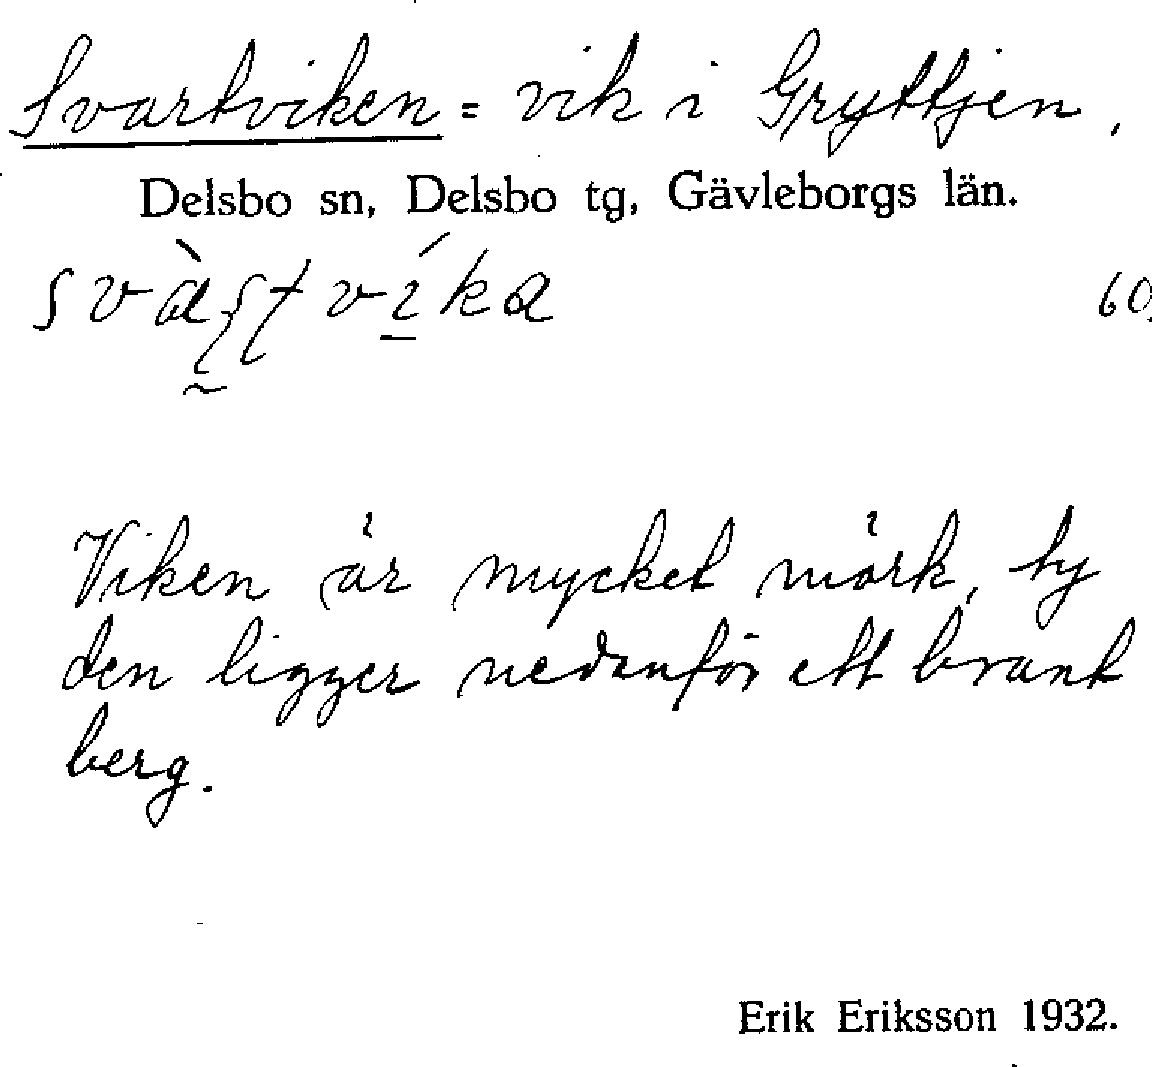 Svartviken = vik i Gryttjen,
Delsbo sn, Delsbo tg, Gävleborgs län.
60,
Viken är mycket mörk, ty
den ligger nedanför ett brant
berg.
Erik Eriksson 1932.